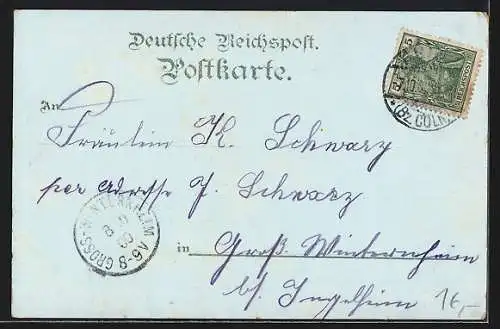 Deutsche Reichspost.
Postkarte.
An
Fräulein K. Schwarz
per Adresse J. Schwarz
in Groß-Winternheim
b/ Ingelheim
GROSS-WINTERNHEIM
(BZ. CÖLN)
16,-